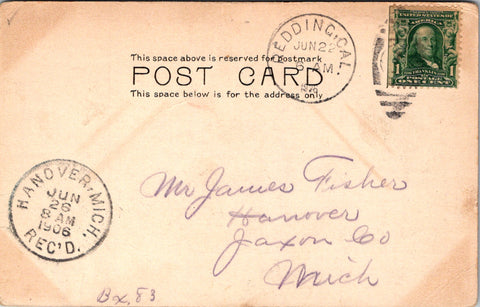 REDDING, CAL.
JUN 22
6 AM
UNITED STATES OF AMERICA
FRANKLIN
1 1
POSTAGE
ONE CENT
This space above is reserved for postmark
POST CARD
This space below is for the address only
HANOVER, MICH.
JUN
26
8 AM
1906
REC'D.
Mr James Fisher
Hanover
Jaxon Co
Mich
Bx. 83